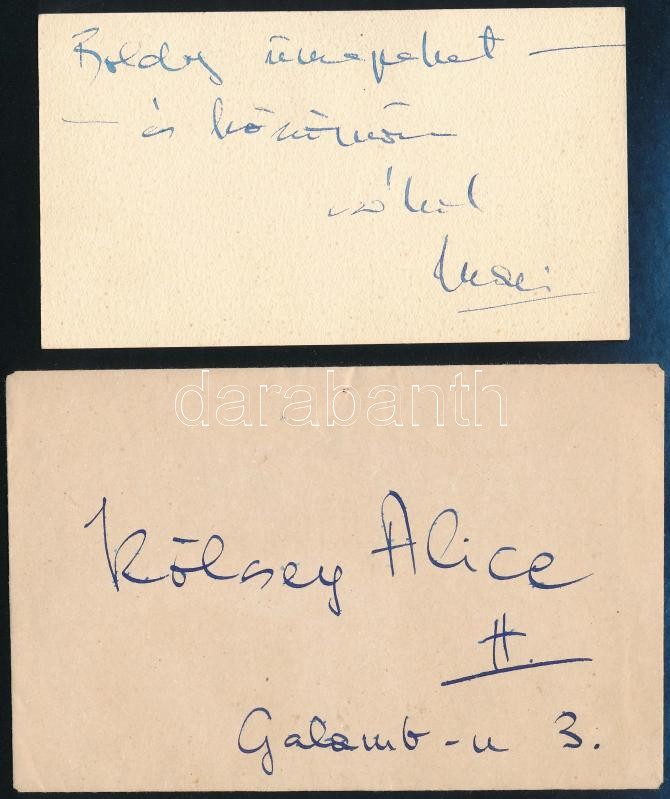 Boldog ünnepeket —
— és köszönöm
sokat
darabanth
Kölcsey Alice
II.
Galamb-u 3.